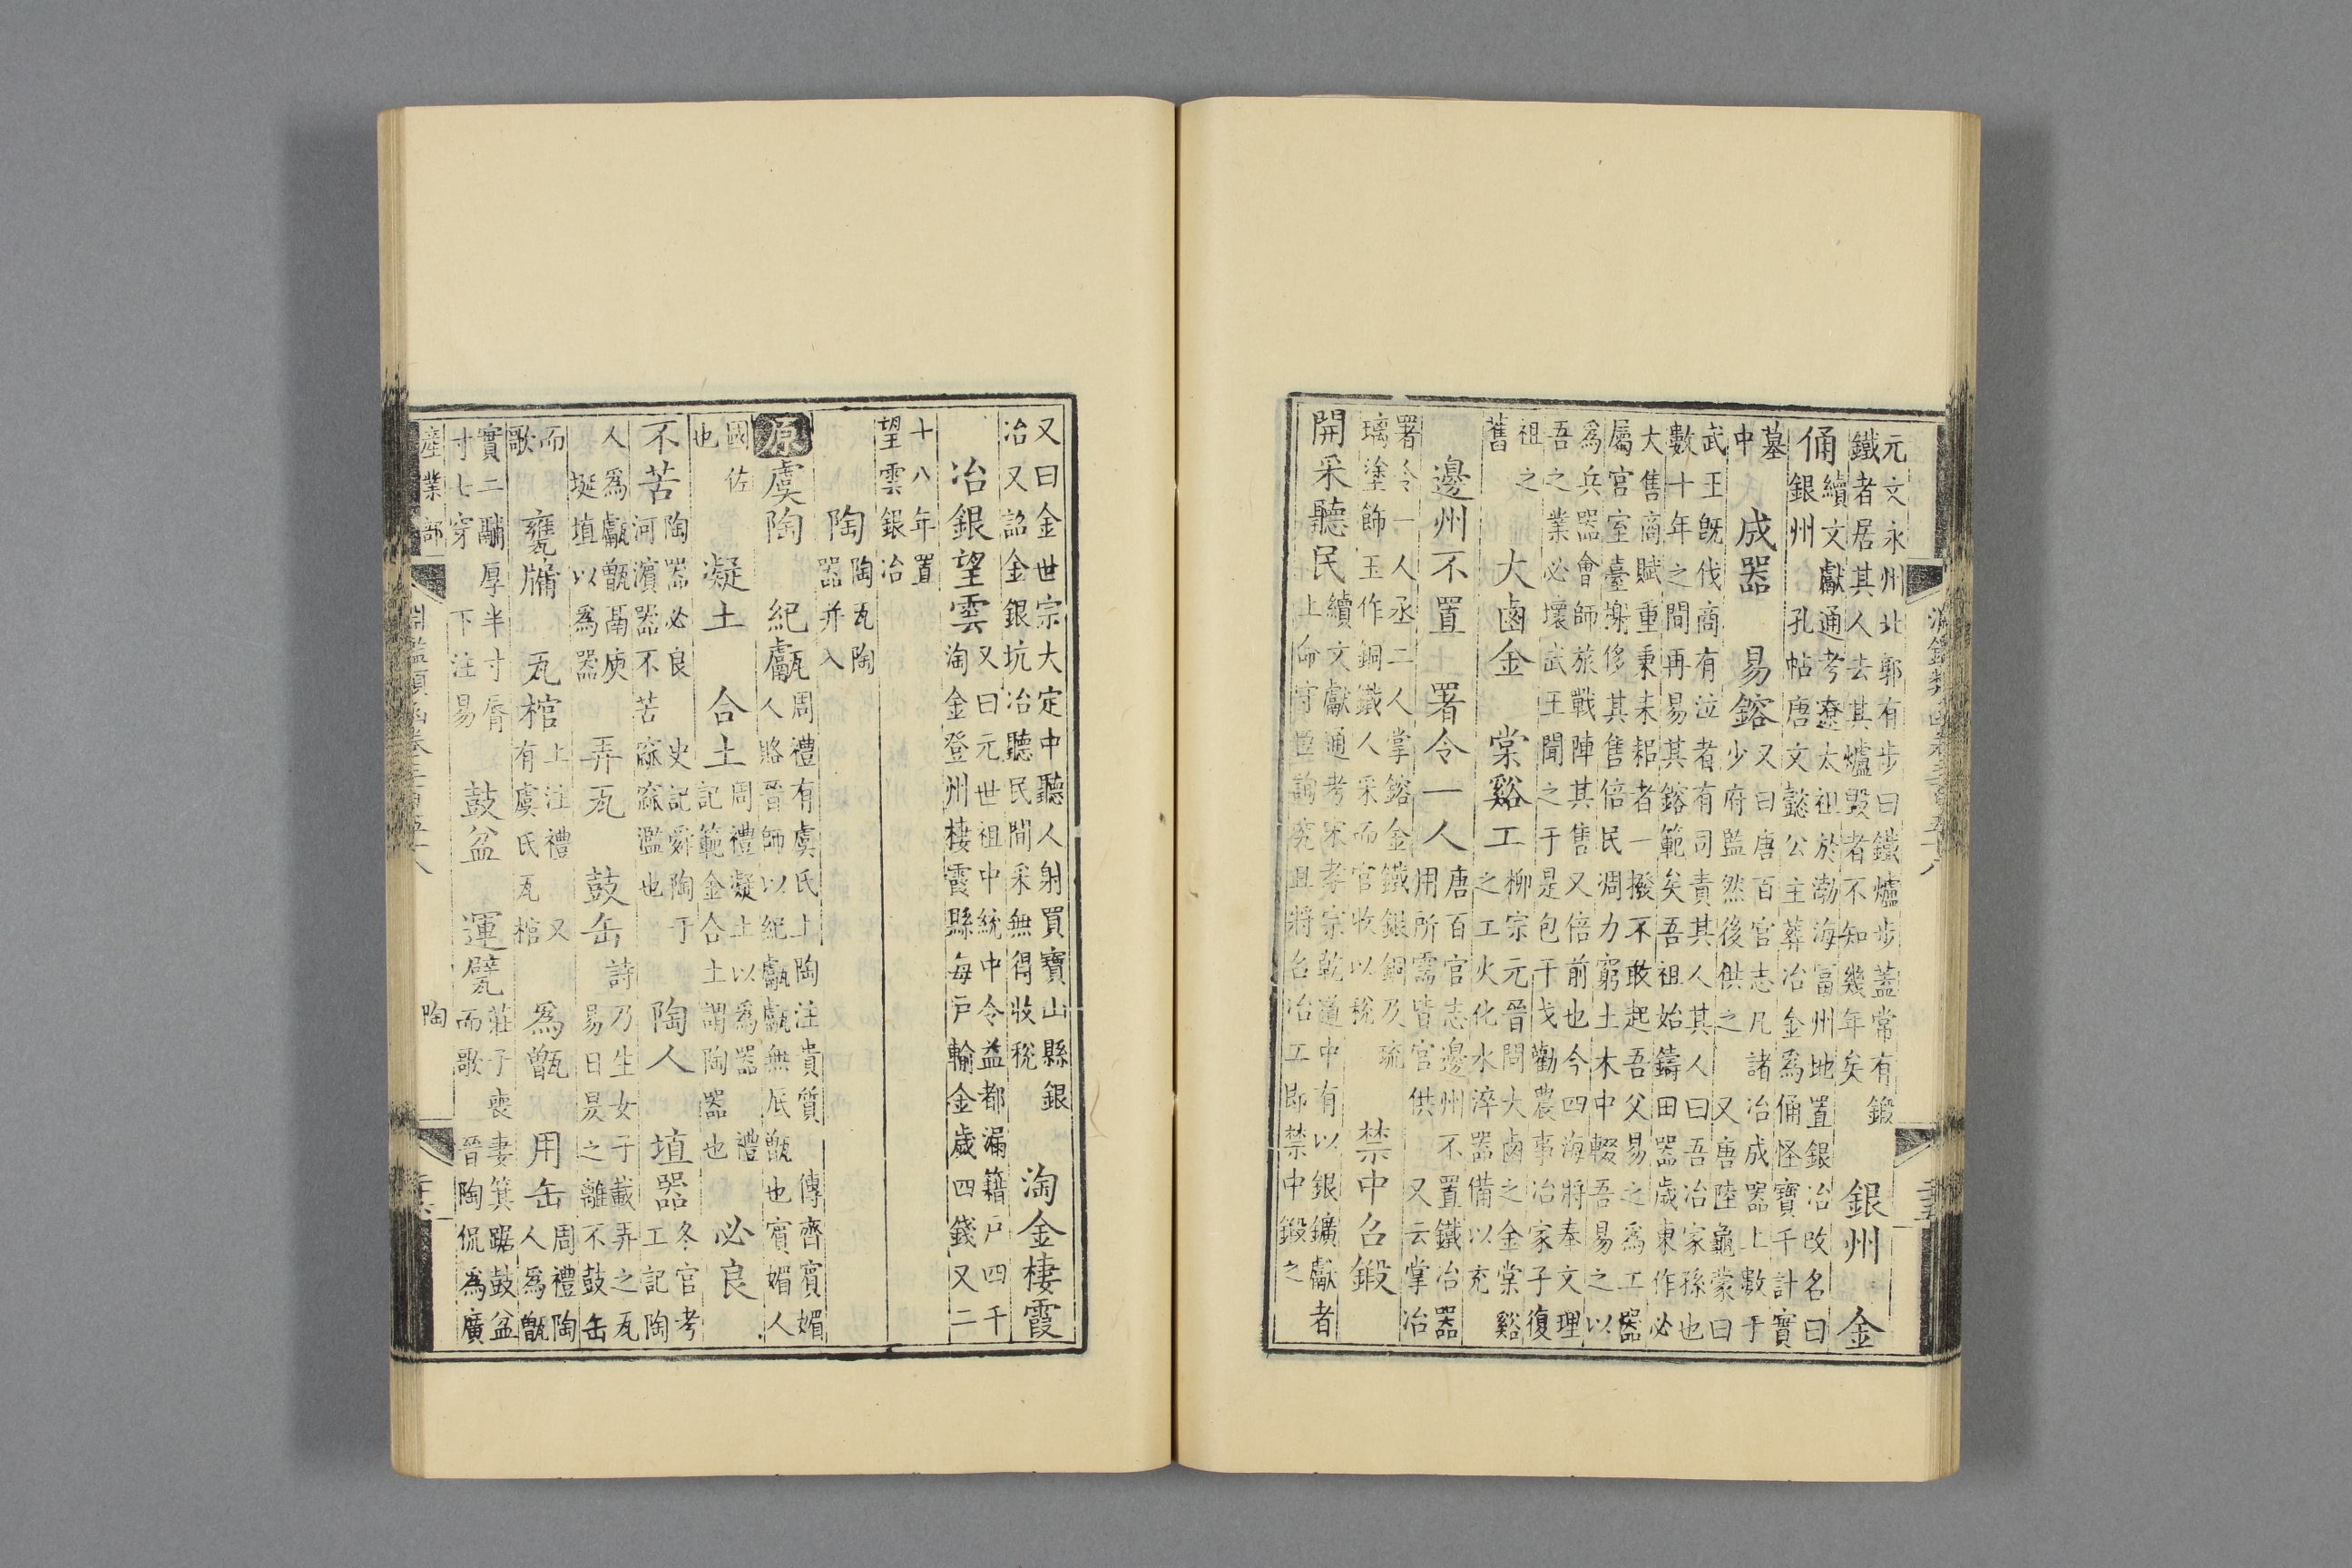 淵鑑類函卷三百五十八
元文永州北郭有步曰鐵爐步蓋常有鍛
鐵者居其人去其爐毀者不知幾年矣
銀州 金
俑
續文獻通考遼太祖於渤海富州地置銀冶改名曰
銀州 孔帖唐文懿公主葬冶金為俑怪寶千計實
墓
中
成器 易鎔
又曰唐百官志凡諸冶成器上數于
少府監然後供之 又唐陸龜蒙曰
武王既伐商有泣者有司責其人其人曰吾冶家孫也
數十年之間再易其鎔範矣吾祖始鑄田器歲東作必
大售商賦重秉耒耜者一撥不敢起吾父易之為工器
屬宮室臺榭侈其售倍民凋力窮土木中輟吾易之以
為兵器會師旅戰陣其售又倍前也今四海將奉文理
吾之業必壞武王聞之于是包干戈勸農事冶家子復
祖之
舊
大鹵金 棠谿工
柳宗元晉問大鹵之金棠谿
之工火化水淬器備以充
邊州不置 署令一人
唐百官志邊州不置鐵冶器
用所需皆官供 又云掌冶
署令一人丞二人掌鎔金鐵銀銅乃琉
璃塗飾玉作銅鐵人采而官收以稅
禁中召鍛
開采聽民
續文獻通考宋孝宗乾道中有以銀鑛獻者
上命守臣詢究且將召冶工即禁中鍛之
又曰金世宗大定中聽人射買寶山縣銀
冶又詔金銀坑冶聽民間采無得收稅
淘金棲霞
冶銀望雲
又曰元世祖中統中令益都漏籍户四千
淘金登州棲霞縣每户輸金歲四錢又二
十八年置
望雲銀冶
陶
陶瓦陶
器并入
原
虞陶 紀甗
周禮有虞氏上陶注貴質 傳齊賓媚
人賂晉師以紀甗甗無底甑也賓媚人
國佐
也
凝土 合土
周禮凝土以為器 禮
記範金合土謂陶器也
必良
不苦
陶器必良 史記舜陶于
河濱器不苦窳窳濫也
陶人 埴器
冬官考
工記陶
人為甗甑鬲庾
埏埴以為器
弄瓦 鼓缶
詩乃生女子載弄之瓦
易日昃之離不鼓缶
而
歌
甕牖 瓦棺
上注禮 又
有虞氏瓦棺
為甑 用缶
周禮陶
人為甑
實二鬴厚半寸脣
寸七穿 下注易
鼓盆 運甓
莊子喪妻箕踞鼓盆
而歌 晉陶侃為廣
產業部
淵鑑類函卷三百五十八
陶